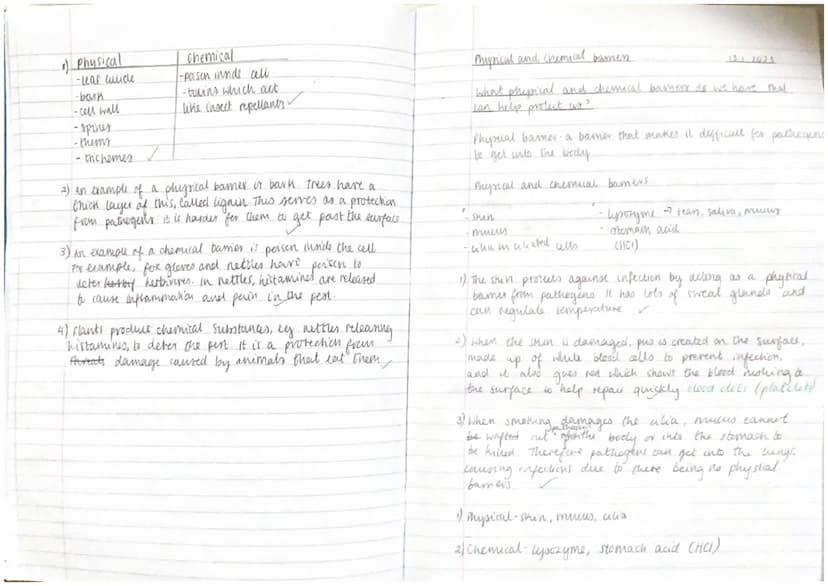 1) Physical
Chemical
- leaf cuticle
- poison inside cell
- bark
- cell wall
like insect repellants ✓
- spines
- thorns
- trichomes ✓
2) An example of a physical barrier is bark. Trees have a
thick layer of this, called lignin. This serves as a protection
from pathogens. it is harder for them to get past the surface
3) An example of a chemical barrier is poison inside the cell
For example, fox gloves and nettles have poison to
deter herbivores. In nettles, histamines are released
to cause inflammation and pain in the pest.
4) Plants produce chemical substances, eg. nettles releasing
histamines, to deter the pest. It is a protection from
threats damage caused by animals that eat them ✓
Physical and chemical barriers
What physical and chemical barriers do we have that
can help protect us?
Physical barrier - a barrier that makes it difficult for pathogens
to get into the body
Physical and chemical barriers
- skin
- lysozyme → tears, saliva, mucus
- mucus
- stomach acid
- cilia in ciliated cells
(HCl)
1) The skin protects against infection by acting as a physical
barrier from pathogens. It has lots of sweat glands and
can regulate temperature ✓
2) When the skin is damaged, pus is created on the surface,
made up of white blood cells to prevent infection,
and it also goes red which shows the blood rushing to
the surface to help repair quickly blood clots (platelets)
3) When smoking damages the cilia, mucus cannot
be wafted out the body or into the stomach to
be killed. Therefore pathogens can get into the lungs
causing infections due to there being no physical
barriers ✓
1) Physical - skin, mucus, cilia
2) Chemical - lysozyme, stomach acid (HCl)